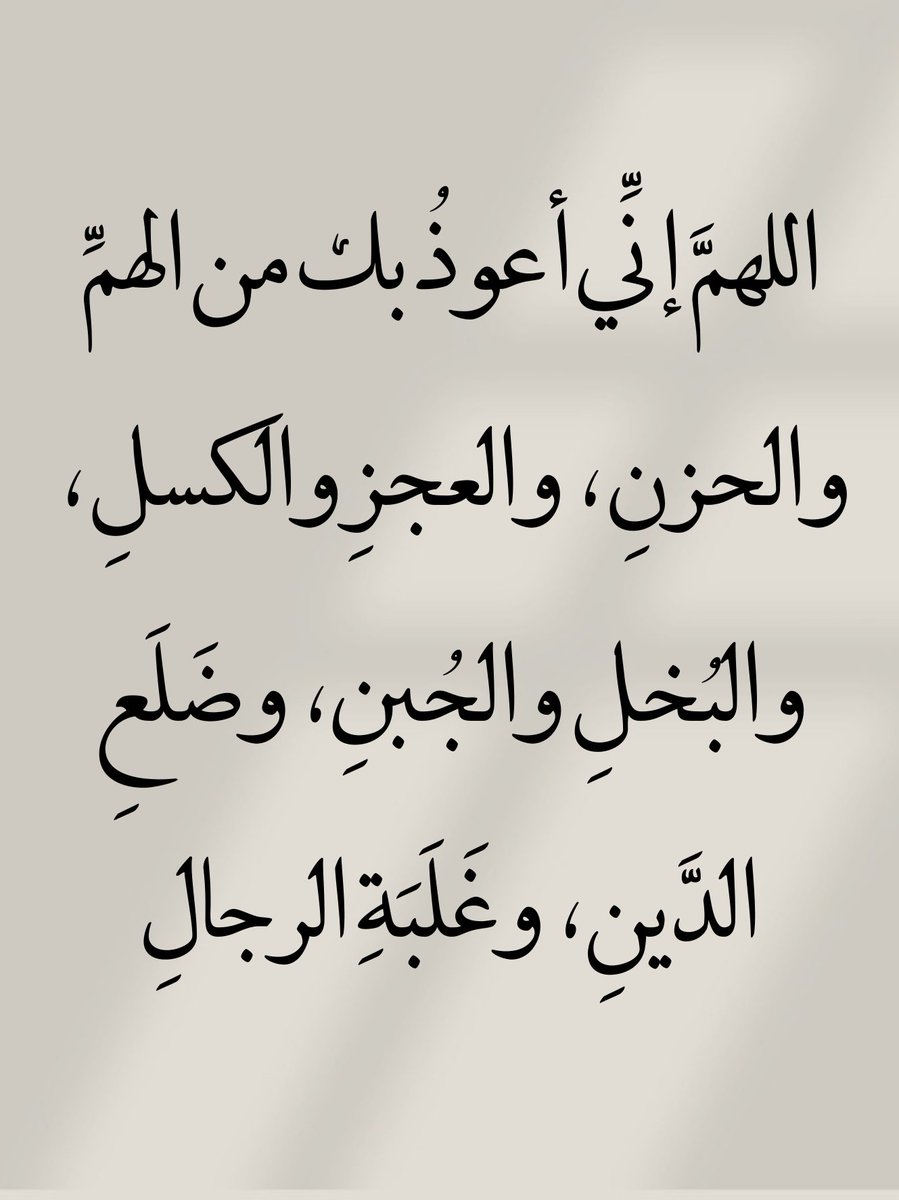 اللهمَّ إنِّي أعوذُ بك من الهمِّ
والحزنِ، والعجزِ والكسلِ،
والبُخلِ والجُبنِ، وضَلَعِ
الدَّينِ، وغَلَبَةِ الرجالِ